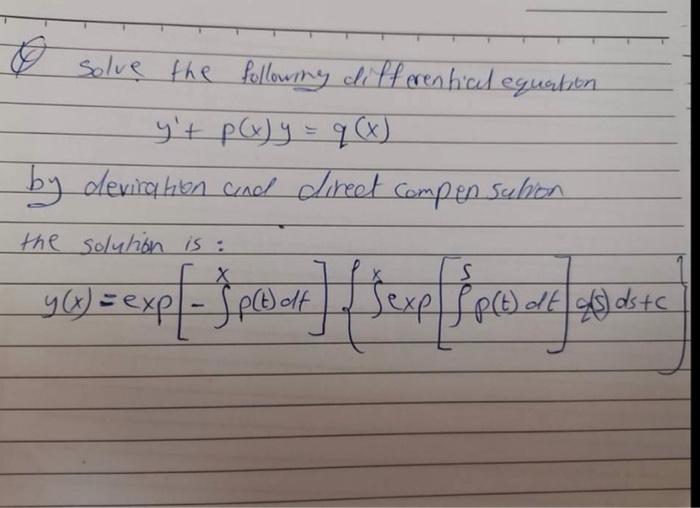 Q solve the following differential equation
y' + p(x) y = q(x)
by deviration and direct compensation
the solution is :
y(x) = exp [ - ∫^x p(t) dt ] { ∫^x exp [ ∫^s p(t) dt ] q(s) ds + c }